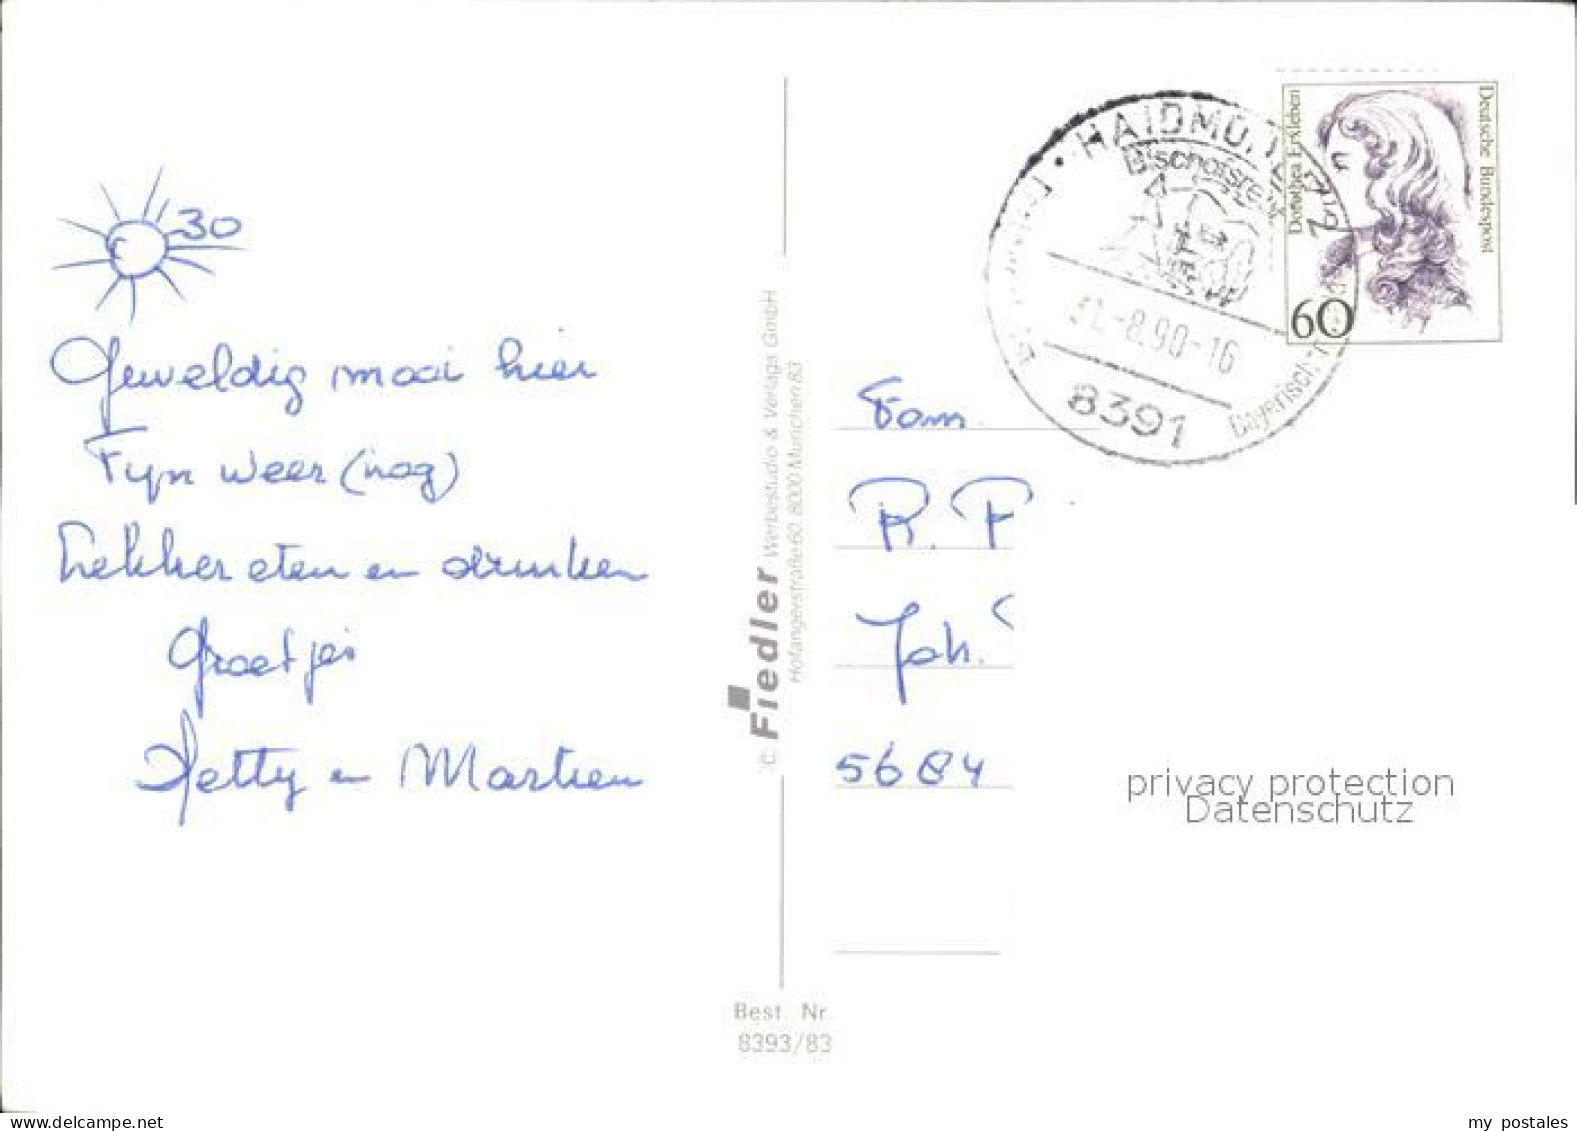 30
Geweldig mooi hier
Fijn weer (nog)
Lekker eten en drinken
Groetjes
Hetty en Martien
© Fiedler Werbestudio & Verlags GmbH
Hofangerstraße 60, 8000 München 83
Best. Nr.
8393/83
HAIDMÜHLE
Bischofsreut
-8.90-16
8391
Deutsche Bundespost
Dorothea Erxleben
60
Fam.
R. P
Joh.
5684
privacy protection
Datenschutz
www.delcampe.net
my postales